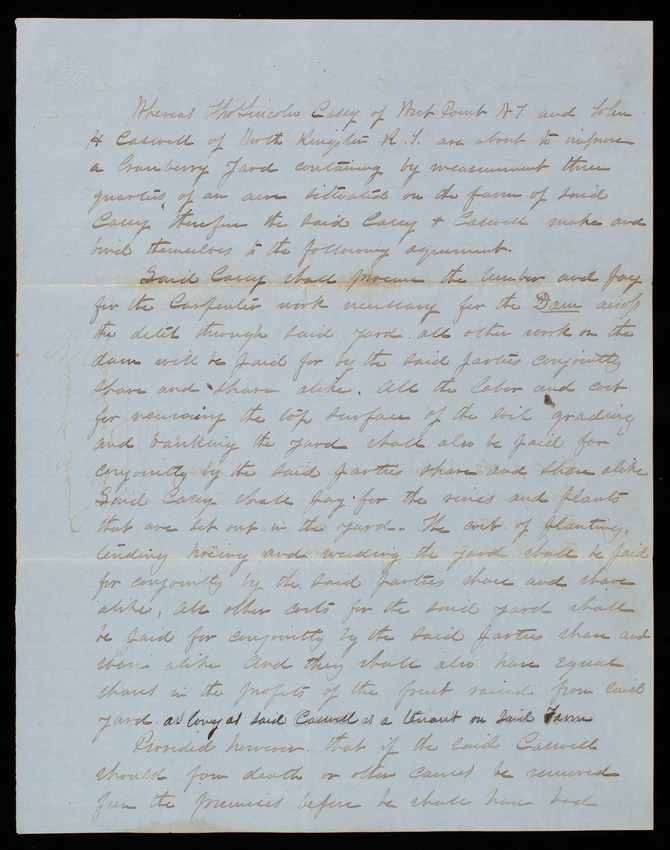 Whereas Tho Lincoln Casey of West Point N.Y. and John
H Caswell of North Kingston R.I. are about to improve
a Cranberry Yard containing by measurement three
quarters of an acre situated on the farm of said
Casey, therefore the said Casey & Caswell make and
bind themselves to the following agreement.
Said Casey shall procure the lumber and pay
for the Carpenters work necessary for the Dam across
the ditch through said yard. all other work on the
dam will be paid for by the said parties conjointly
share and share alike. All the labor and cost
for removing the top surface of the soil grading
and banking the yard shall also be paid for
conjointly by the said parties share and share alike
Said Casey shall pay for the vines and plants
that are set out in the yard. The cost of planting,
tending hoeing and weeding the yard shall be paid
for conjointly by the said parties share and share
alike. All other costs for the said yard shall
be paid for conjointly by the said parties share and
share alike And they shall also have equal
shares in the profits of the fruit raised from said
yard. as long as said Caswell is a tenant on said Farm
Provided however. that if the said Caswell
should from death or other causes be removed
from the premises before he shall have had